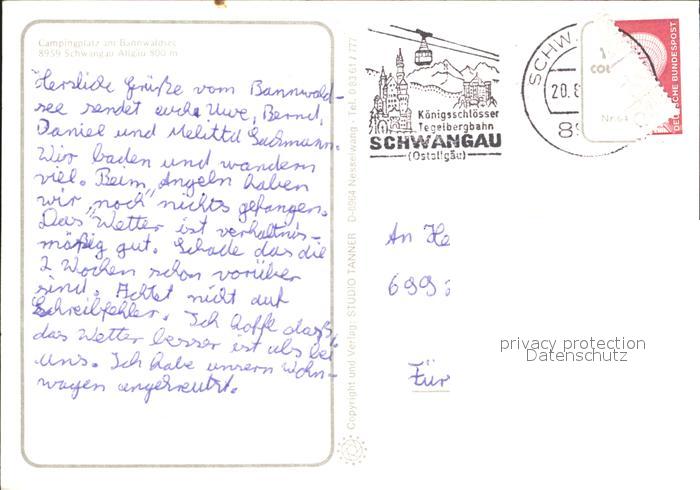 Campingplatz am Bannwaldsee
8959 Schwangau Allgäu 800 m
Herzliche Grüße vom Bannwald-
see sendet euch Uwe, Bernd,
Daniel und Melitta
Wir baden und wandern
viel. Beim Angeln haben
wir „noch" nichts gefangen.
Das Wetter ist verhältnis-
mäßig gut. Schade das die
2 Wochen schon vorüber
sind. Achtet nicht auf
Schreibfehler. Ich hoffe daß
das Wetter besser ist als bei
uns. Ich habe unsern Wohn-
wagen
Copyright und Verlag: STUDIO TANNER D-8964 Nesselwang - Tel. 0 83 61 / 777
Königsschlösser
Tegelbergbahn
SCHWANGAU
(Ostallgäu)
SCHW
20.8
89
COL
Nr.
DEUTSCHE BUNDESPOST
An He
699
Für
privacy protection
Datenschutz